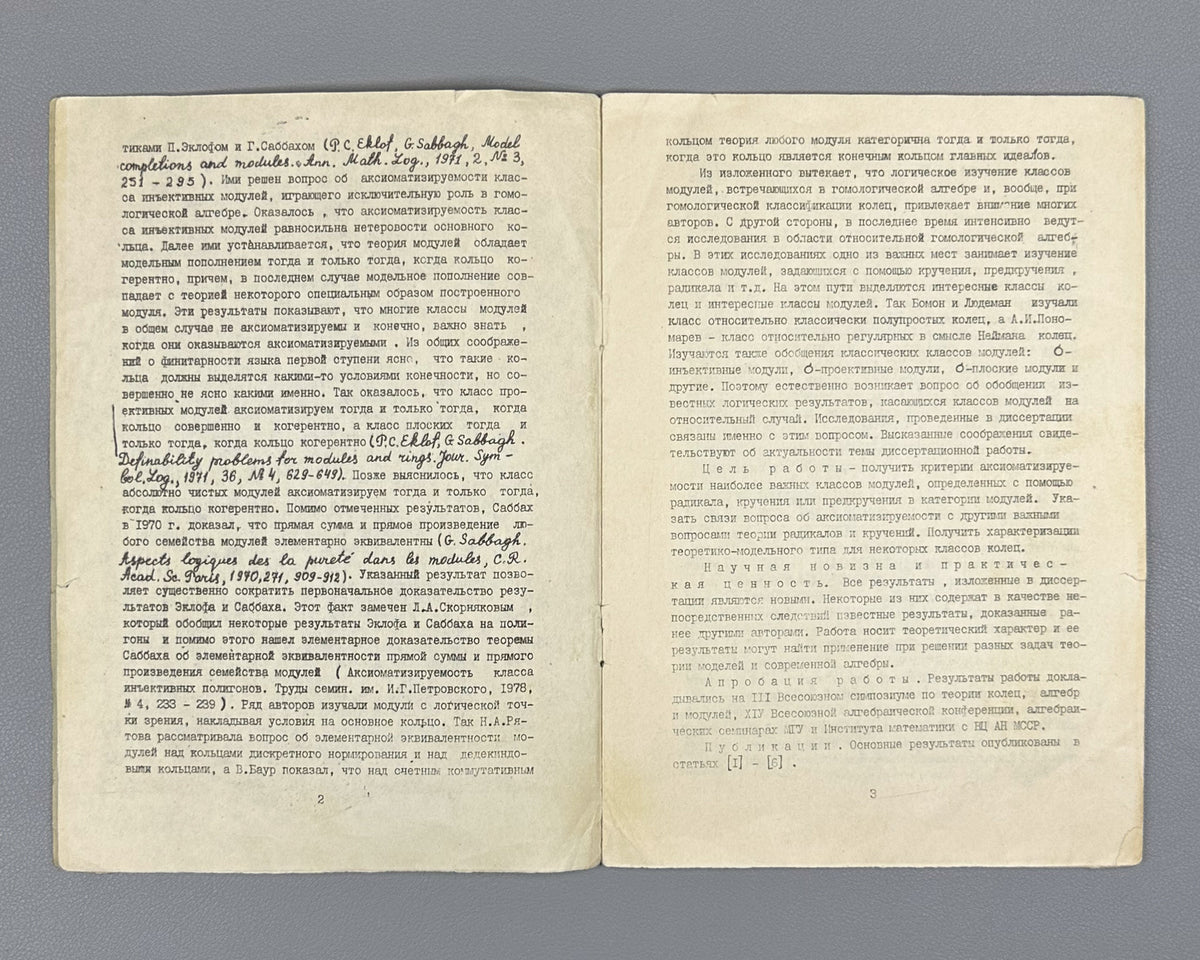 тиками П.Эклофом и Г.Саббахом (P.C. Eklof, G. Sabbagh, Model
completions and modules. Ann. Math. Log., 1971, 2, № 3,
251 – 295). Ими решен вопрос об аксиоматизируемости клас-
са инъективных модулей, играющего исключительную роль в гомо-
логической алгебре. Оказалось , что аксиоматизируемость клас-
са инъективных модулей равносильна нетеровости основного ко-
льца. Далее ими устанавливается, что теория модулей обладает
модельным пополнением тогда и только тогда, когда кольцо ко-
герентно, причем, в последнем случае модельное пополнение сов-
падает с теорией некоторого специальным образом построенного
модуля. Эти результаты показывают, что многие классы модулей
в общем случае не аксиоматизируемы и конечно, важно знать ,
когда они оказываются аксиоматизируемыми . Из общих соображе-
ний о финитарности языка первой ступени ясно, что такие ко-
льца должны выделятся какими-то условиями конечности, но со-
вершенно не ясно какими именно. Так оказалось, что класс про-
ективных модулей аксиоматизируем тогда и только тогда, когда
кольцо совершенно и когерентно, а класс плоских тогда и
только тогда, когда кольцо когерентно (P.C. Eklof, G Sabbagh.
Definability problems for modules and rings. Jour. Sym-
bol. Log., 1971, 36, № 4, 629-649). Позже выяснилось, что класс
абсолютно чистых модулей аксиоматизируем тогда и только тогда,
когда кольцо когерентно. Помимо отмеченных результатов, Саббах
в 1970 г. доказал, что прямая сумма и прямое произведение лю-
бого семейства модулей элементарно эквивалентны (G. Sabbagh.
Aspects logiques des la pureté dans les modules, C.R.
Acad. Sc. Paris, 1970, 271, 909-912). Указанный результат позво-
ляет существенно сократить первоначальное доказательство резу-
льтатов Эклофа и Саббаха. Этот факт замечен Л.А.Скорняковым ,
который обобщил некоторые результаты Эклофа и Саббаха на поли-
гоны и помимо этого нашел элементарное доказательство теоремы
Саббаха об элементарной эквивалентности прямой суммы и прямого
произведения семейства модулей ( Аксиоматизируемость класса
инъективных полигонов. Труды семин. им. И.Г.Петровского, 1978,
№ 4, 233 – 239 ). Ряд авторов изучали модули с логической точ-
ки зрения, накладывая условия на основное кольцо. Так Н.А.Ря-
това рассматривала вопрос об элементарной эквивалентности мо-
дулей над кольцами дискретного нормирования и над дедекиндо-
выми кольцами, а В.Баур показал, что над счетным коммутативным
2
кольцом теория любого модуля категорична тогда и только тогда,
когда это кольцо является конечным кольцом главных идеалов.
Из изложенного вытекает, что логическое изучение классов
модулей, встречающихся в гомологической алгебре и, вообще, при
гомологической классификации колец, привлекает внимание многих
авторов. С другой стороны, в последнее время интенсивно ведут-
ся исследования в области относительной гомологической алгеб-
ры. В этих исследованиях одно из важных мест занимает изучение
классов модулей, задающихся с помощью кручения, предкручения ,
радикала и т.д. На этом пути выделяются интересные классы ко-
лец и интересные классы модулей. Так Бомон и Людеман изучали
класс относительно классически полупростых колец, а А.И.Поно-
марев – класс относительно регулярных в смысле Неймана колец.
Изучаются также обобщения классических классов модулей: б-
инъективные модули, б-проективные модули, б-плоские модули и
другие. Поэтому естественно возникает вопрос об обобщении из-
вестных логических результатов, касающихся классов модулей на
относительный случай. Исследования, проведенные в диссертации
связаны именно с этим вопросом. Высказанные соображения свиде-
тельствуют об актуальности темы диссертационной работы.
Цель работы – получить критерии аксиоматизируе-
мости наиболее важных классов модулей, определенных с помощью
радикала, кручения или предкручения в категории модулей. Ука-
зать связи вопроса об аксиоматизируемости с другими важными
вопросами теории радикалов и кручений. Получить характеризации
теоретико-модельного типа для некоторых классов колец.
Научная новизна и практичес-
кая ценность. Все результаты , изложенные в диссер-
тации являются новыми. Некоторые из них содержат в качестве не-
посредственных следствий известные результаты, доказанные ра-
нее другими авторами. Работа носит теоретический характер и ее
результаты могут найти применение при решении разных задач тео-
рии моделей и современной алгебры.
Апробация работы. Результаты работы докла-
дывались на III Всесоюзном симпозиуме по теории колец, алгебр
и модулей, XIУ Всесоюзной алгебраической конференции, алгебраи-
ческих семинарах МГУ и Института математики с ВЦ АН МССР.
Публикации. Основные результаты опубликованы в
статьях [I] – [6] .
3